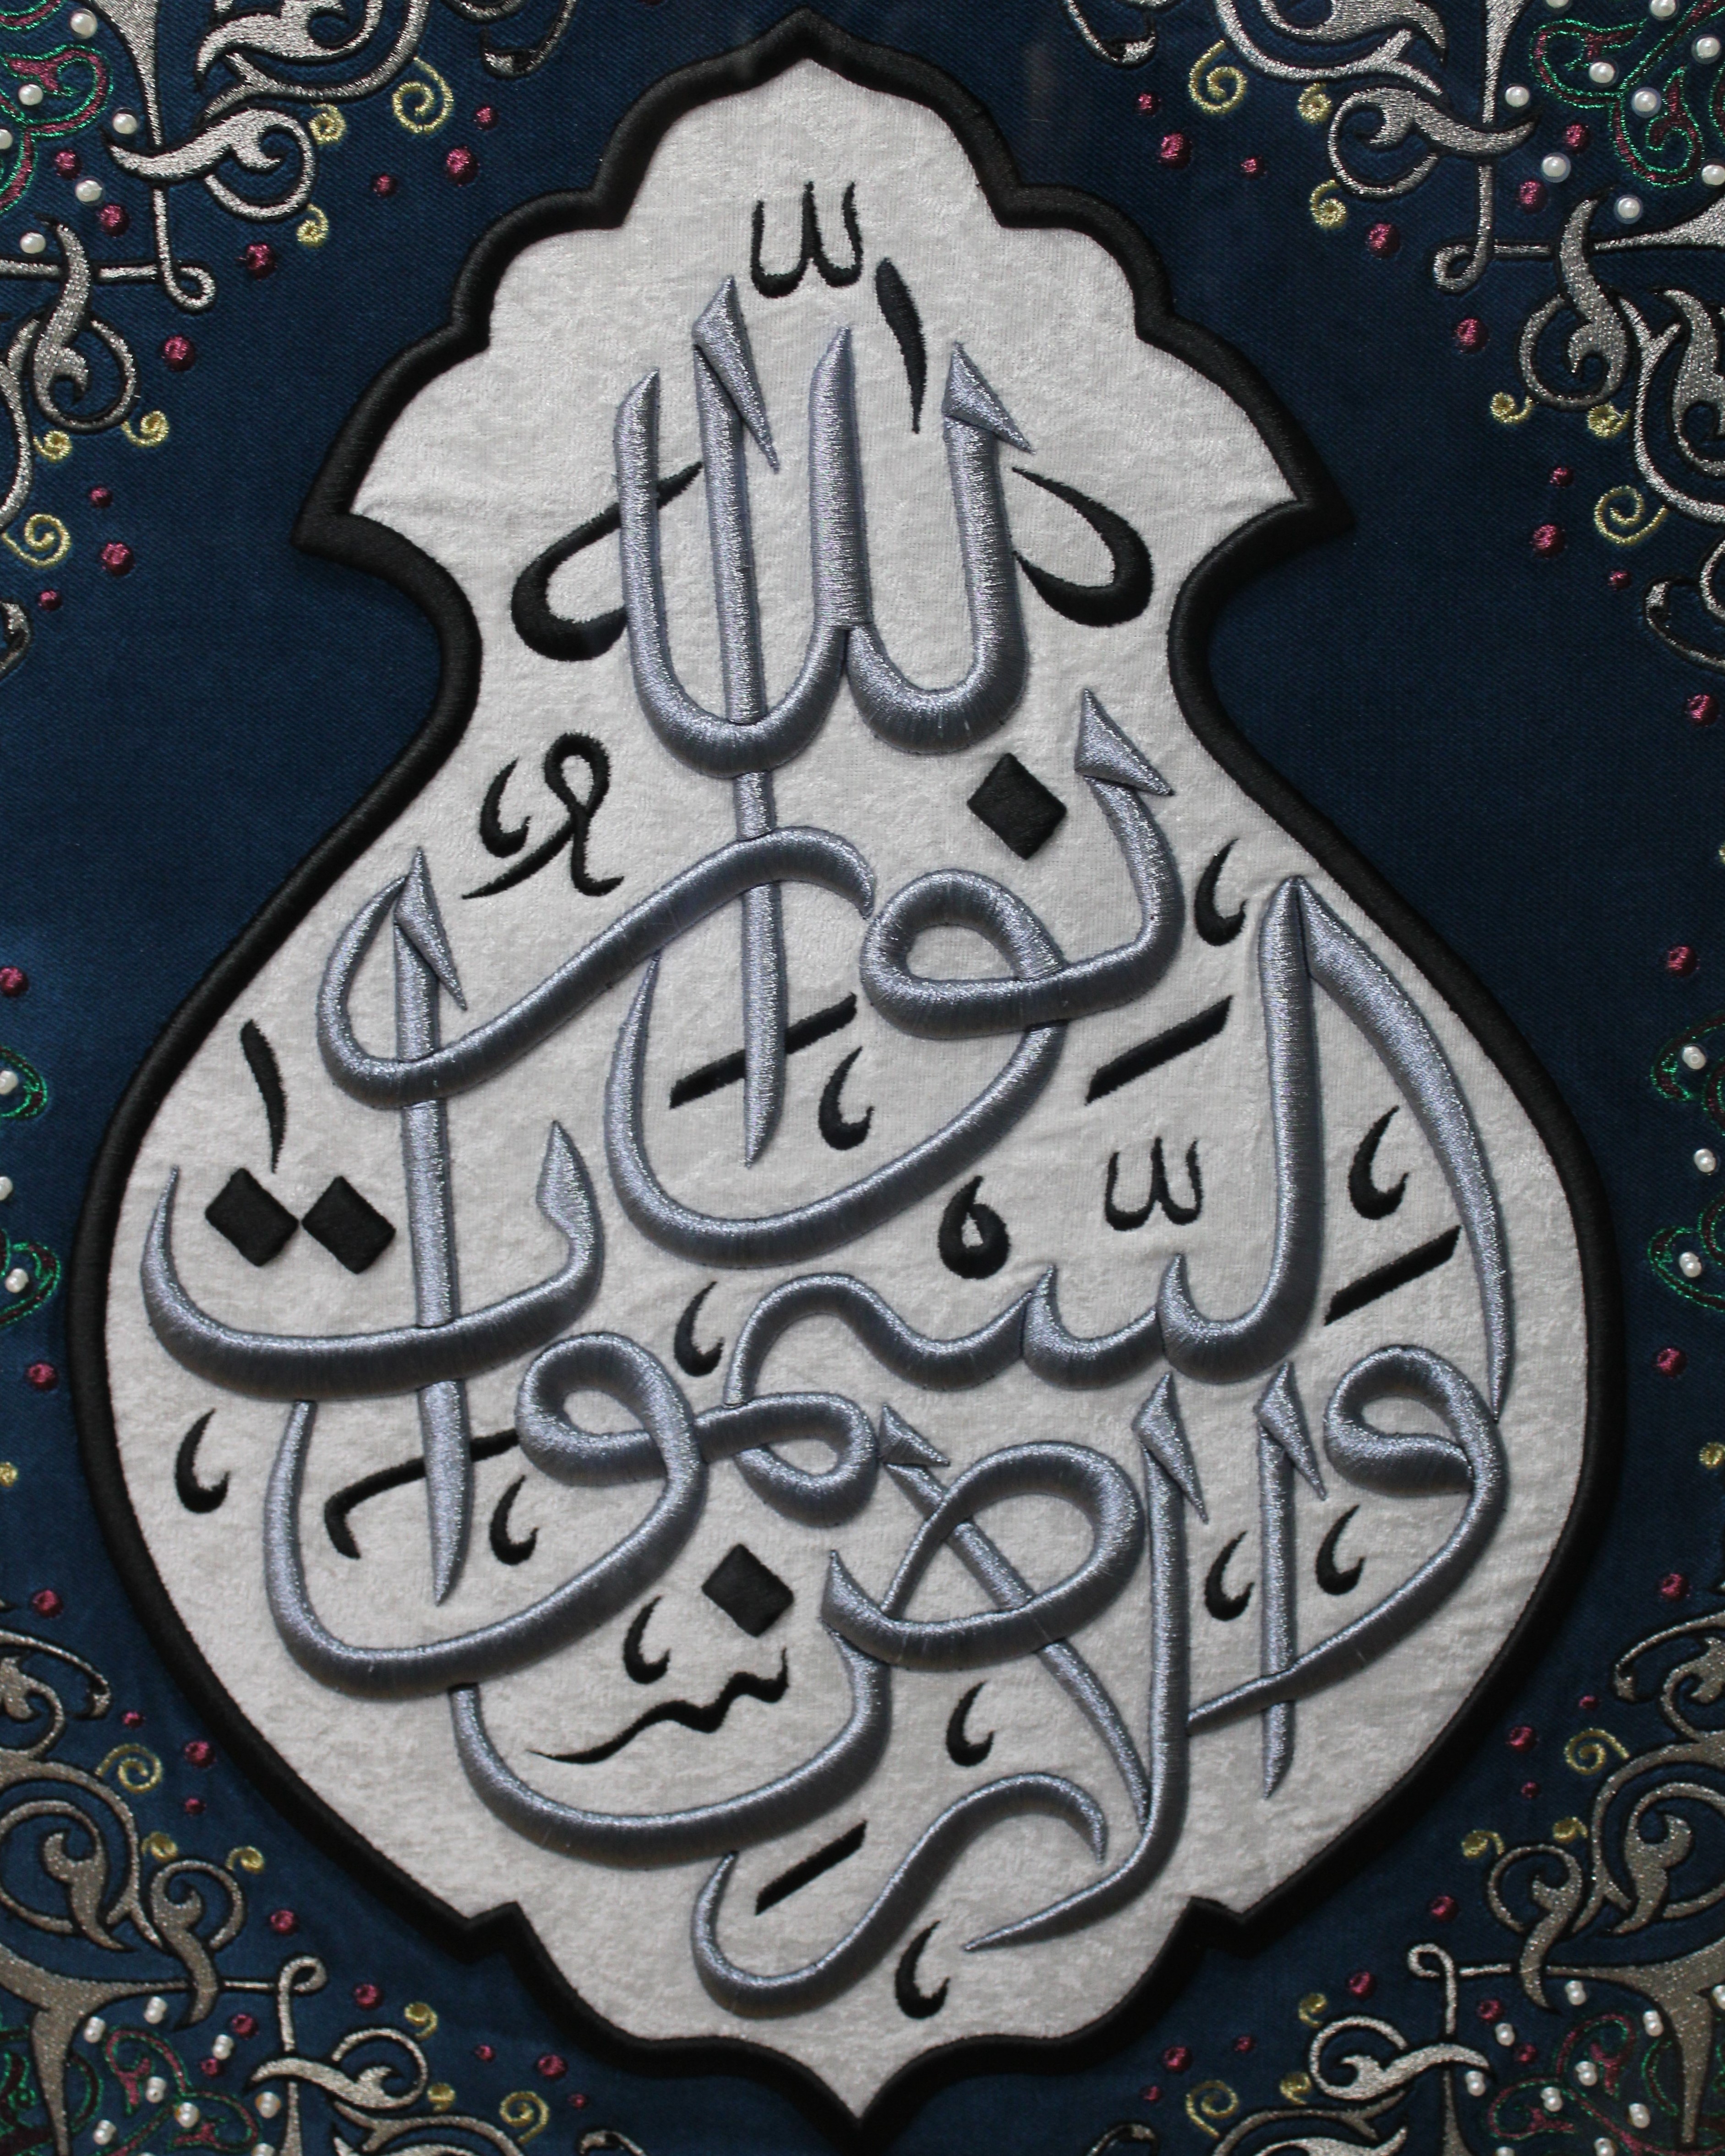 الله نور السموات والارض